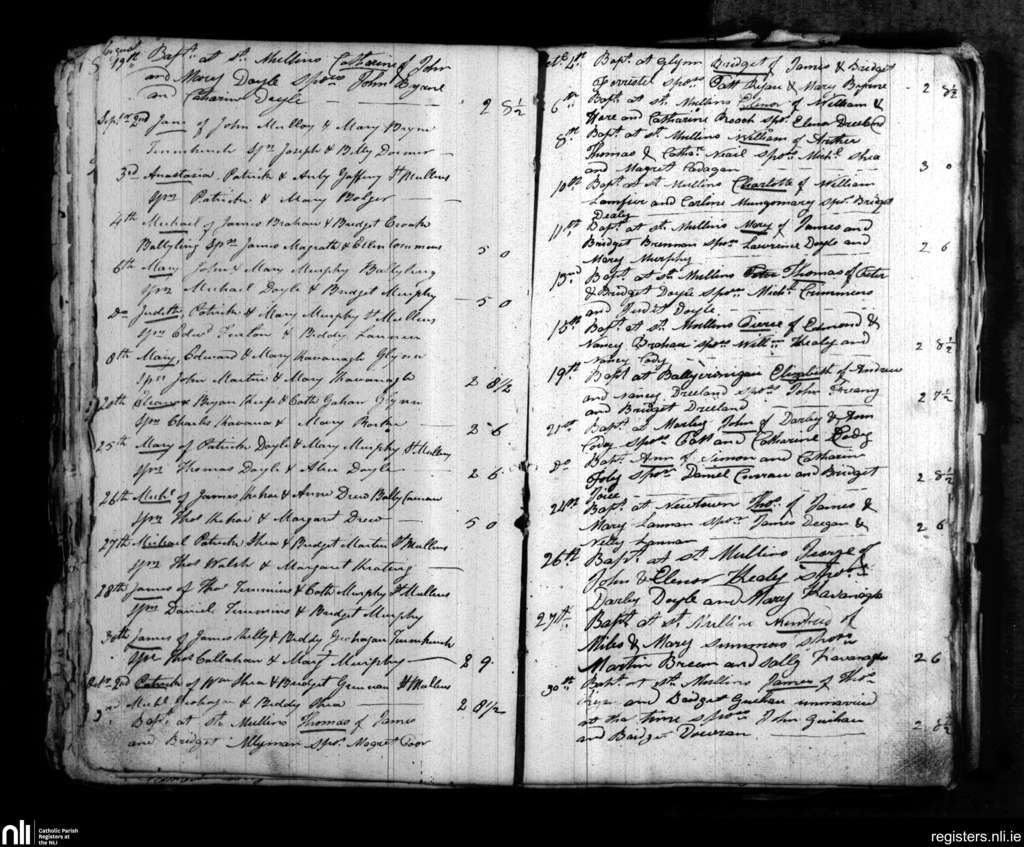 August
19th Bapt. at St. Mullins Catharine of John
and Mary Doyle Sponrs John Byrne
and Catharine Doyle 2 8½
Septr 2nd Jane of John Mulloy & Mary Bryne
Tinnehinch Spn Joseph & Biddy
3rd Anastasia, Patrick & Anty Gaffney St Mullens
Spn Patrick & Mary Bolger
4th Michael of James Brahan & Bridget
Ballyling Spn James Magrath & Ellen 5 0
6th Mary John & Mary Murphy Ballyling
Spn Michael Doyle & Bridget Murphy 5 0
Do Judith, Patrick & Mary Murphy St Mullens
Spn Edwd & Biddy Lannen
8th Mary, Edward & Mary Kavanagh Glynn
Spn John Martin & Mary Kavanagh 2 8½
20th & Bryan & Cath Gahan Glynn
Spn Charles Kavana & Mary 2 6
25th Mary of Patrick Doyle & Mary Murphy St Mullens
Spn Thomas Doyle & Alice Doyle 2 6
26th Michl of James & Anne Drew
Spn Thos & Margaret Drew 5 0
27th Michael Patrick Shea & Bridget Martin St Mullens
Spn Thos Walsh & Margaret Keating
28th James of Thos Timmins & Cath Murphy St Mullens
Spn Daniel Timmins & Bridget Murphy
30th James of James Kelly & Biddy Geohagan Tinnehinch
Spn Thos Callahan & Margt Murphy 2 9
Octr 2nd Patrick of Wm Shea & Bridget St Mullens
Michl Geohagan & Biddy Shea 2 8½
3rd Bapt. at St. Mullins Thomas of James
and Bridget Sponr. Magret
Oct. 4th Bapt. at Glynn Bridget of James & Bridget
Forrister sponrs Patt & Mary 2 8½
6th Bapt. at St. Mullins Elenor of William &
Hare and Catharine Roach spr. Elenor Dreeland
8th Bapt. at St. Mullins William of Arther
Thomas & Cathr. Neail sponrs Michl. Shea
and Magret Cadagan 3 0
10th Bapt. at St. Mullins Charlotte of William
and Carline Mungomary spr. Bridget
Dealy
11th Bapt. at St. Mullins Mary of James and
Bridget Brennan sponrs Lawrence Doyle and
Mary Murphy 2 6
13th Bapt. at St. Mullins Thomas of Peter
& Bridget Doyle sponrs Michl. Crimmeens
and Judit Doyle
15th Bapt. at St. Mullins Pierce of Edmond &
Nancy Brohan sponrs Willm. Healy and
Nancy Cody 2 8½
19th Bapt at Elizabeth of Andrew
and Nancy Dreeland sponrs John
and Bridget Dreeland 2 7½
21st Bapt. at Marley John of Darby & Ann
Cody sponrs Patt and Catharine Cody
Do Bapt. Ann of Simon and Catharin
Foley sponrs Daniel Curran and Bridget 2 8½
24th Bapt. at Newtown Thos. of James &
Mary Lannan sponrs James Deegan &
Nelly Lannan 2 6
26th Bapt. at St. Mullins George of
John & Elenor Healy sponrs
Darby Doyle and Mary Kavanagh
27th Bapt. at St. Mullins of
Miles & Mary Summers sponrs
Martin Breen and Sally Kavanagh 2 6
30th Bapt. at St. Mullins James of Thos.
and Bridget unmarried
at the time sponrs John
and Bridget 2 8½
nli
Catholic Parish
Registers at
the NLI
registers.nli.ie